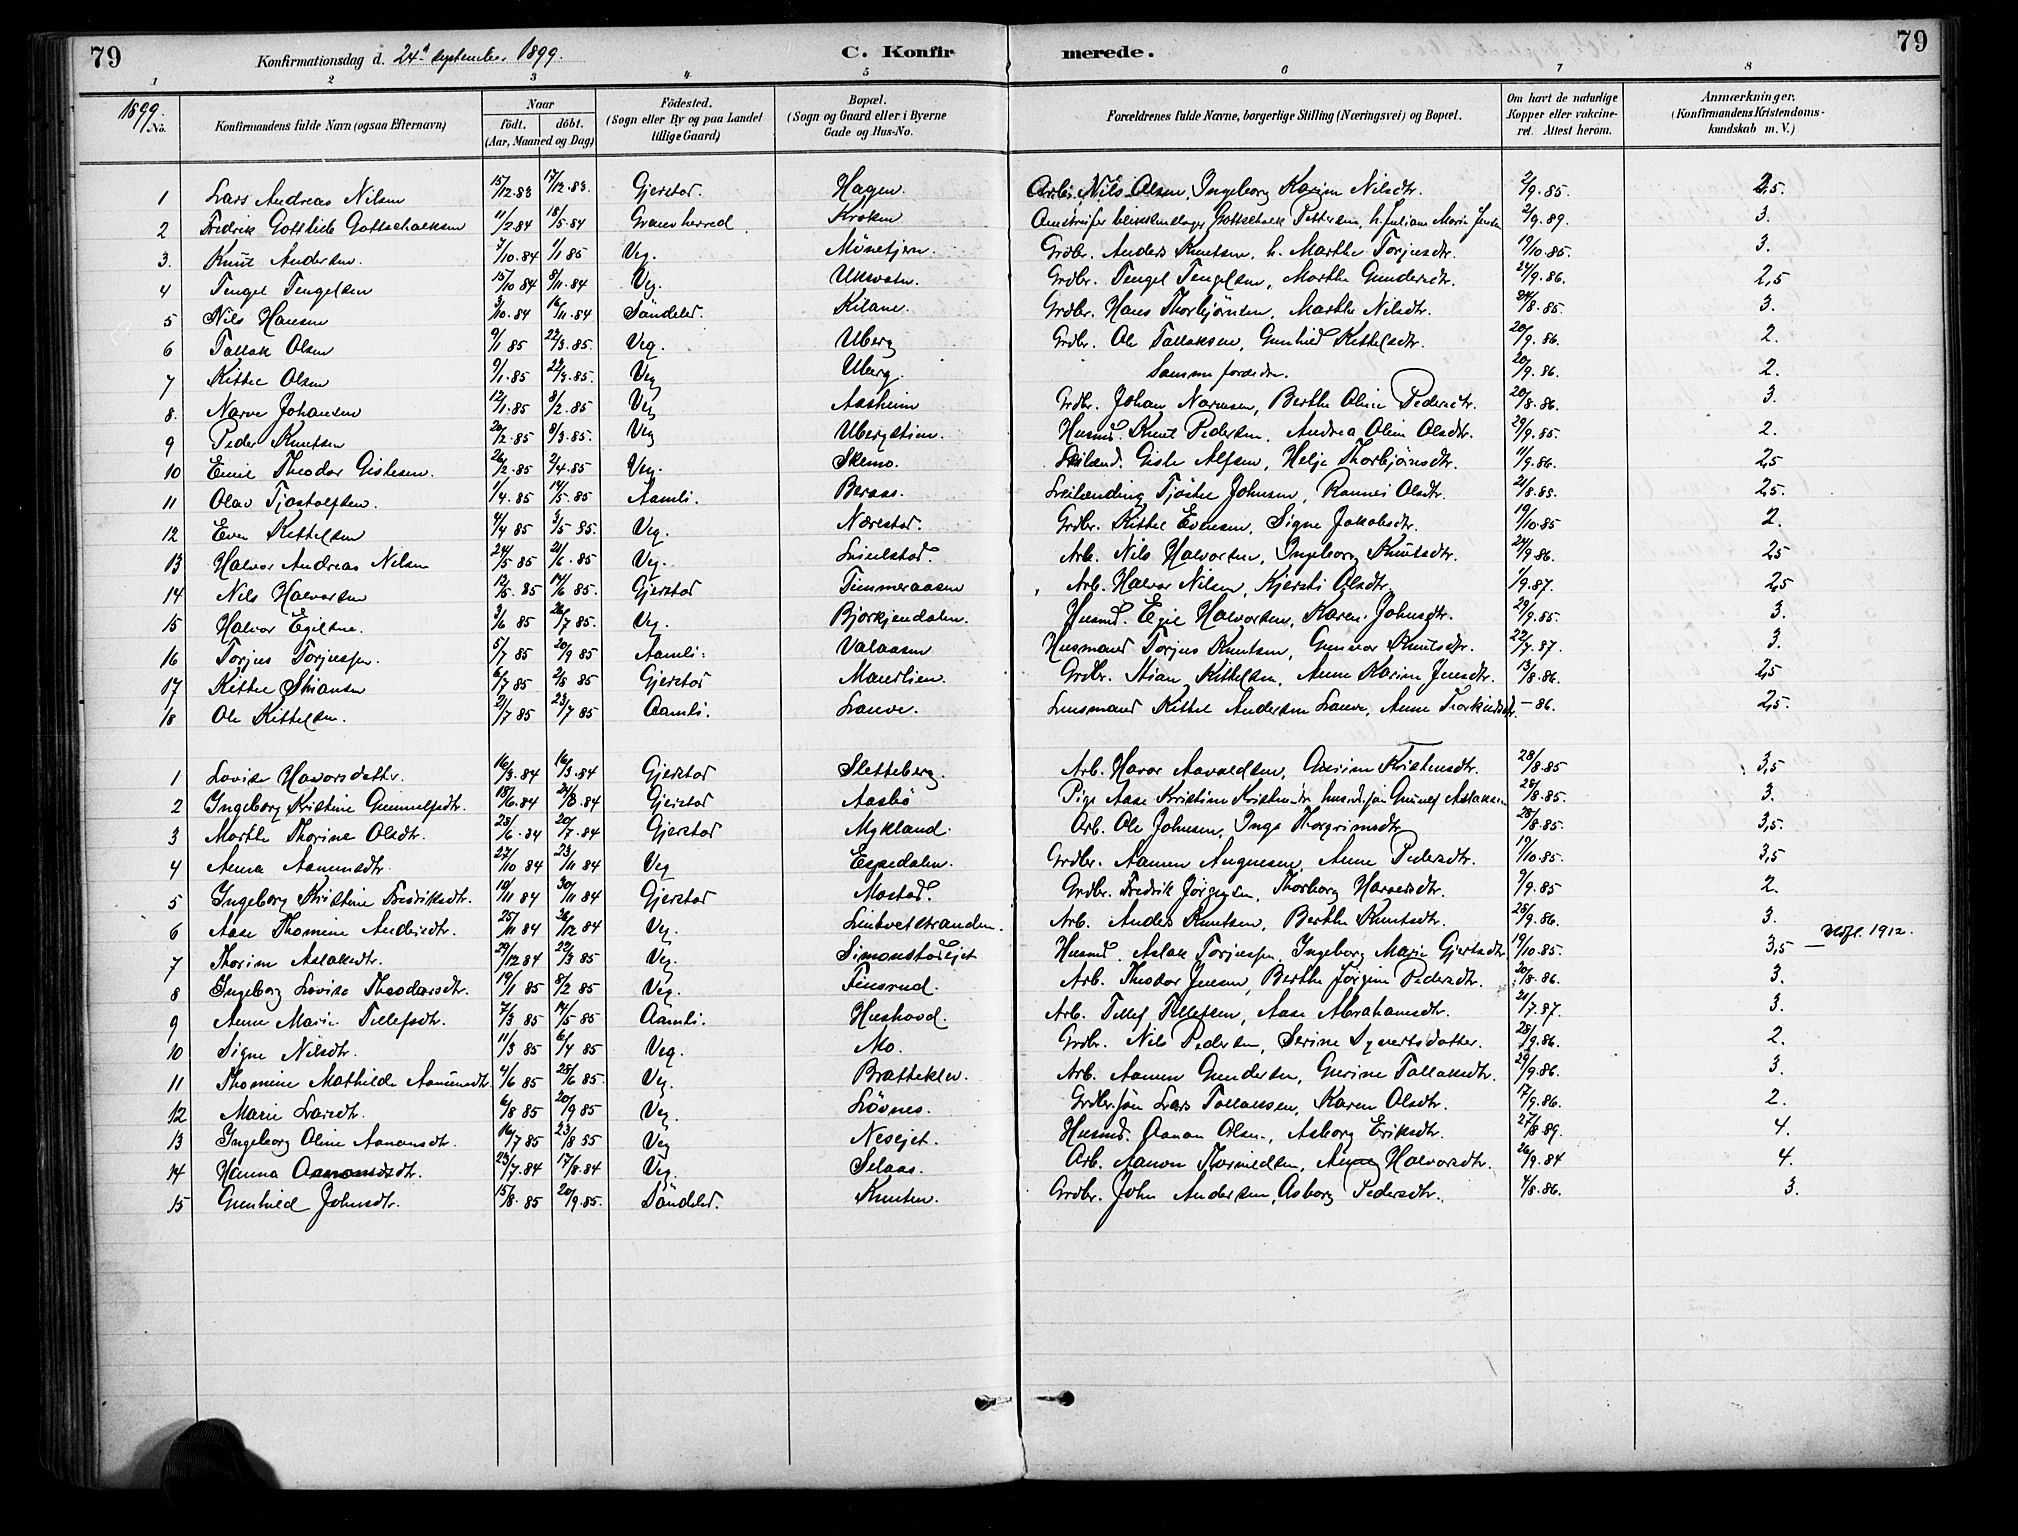 79 Konfirmationsdag d. 24d september 1899. C. Konfirmerede. 79
1 2 3 4 5 6 7 8
1899. No. Konfirmandens fulde Navn (ogsaa Efternavn) Naar födt. döbt. (Aar, Maaned og Dag) Födested. (Sogn eller By og paa Landet tillige Gaard) Bopæl. (Sogn og Gaard eller i Byerne Gade og Hus-No. Forældrenes fulde Navne, borgerlige Stilling (Næringsvei) og Bopæl. Om havt de naturlige Kopper eller vakcineret. Attest herom. Anmærkninger. (Konfirmandens Kristendomskundskab m. V.)
1 Lars Andreas Nilsen 15/12.83 17/12.83. Gjerstad. Hagen. Arb. Nils Olsen, Ingeborg Karine Nilsdtr. 2/9.85. 2,5.
2 Fredrik Gottlieb Gottschalksen 11/2.84 18/5.84 Granherred Kroken Gottschalk Pettersen, h. Juliane Marie Jensen 2/9.89. 3.
3. Knut Andersen. 7/10.84 1/1 85 Veg. Mönetjern. Grdbr. Anders Knutsen, h. Marthe Torjusdtr. 19/10.85. 3.
4 Tengel Tengelsen 15/10 84 8/11.84 Veg. Uksvatn. Grdbr. Tengel Tengelsen, Marthe Gundersdtr. 24/9.86. 2,5
5 Nils Hansen 3/10.84 16/11.84 Söndeled. Kilane. Grdbr. Hans Thorbjörnsen, Marthe Nilsdtr. 24/8.85. 3.
6 Tallak Olsen 9/1 85 22/3.85. Veg. Uberg Grdbr. Ole Tallaksen, Gunhild Kittelsdtr. 20/9.86. 2.
7 Kittel Olsen 9/1.85 22/3.85. Veg Uberg. Samme foreldre. 20/9.86. 2.
8. Narve Johansen 12/1.85 8/2.85 Veg Aasheim Grdbr. Johan Narvesen, Berthe Oline Pedersdtr. 20/8.86. 3.
9 Peder Knutsen 20/2.85 8/3.85. Veg Ubergstien. Husmd. Knut Pedersen. Andrea Oline Olsdtr. 29/9.85. 2.
10 Emil Theodor Gislesen. 26/2.85 2/4.85 Veg. Skemo. Gisle Alfsen, Helje Thorbjörnsdtr. 11/9.86. 2,5
11 Olav Tjostolfsen. 1/4.85 14/5.85 Aamli. Beraas. Leilending Tjöstel Johnsen, Rannei Olsdtr. 21/8.85. 2,5.
12 Even Kittelsen 4/4 85 3/5 85. Veg. Nærestad. Grdbr. Kittel Evensen, Signe Jakobsdtr. 19/10.85 2.
13 Halvor Andreas Nilsen 24/5 85 21/6.85 Veg. Lindstad. Arb. Nils Halvorsen, Ingeborg Knutsdtr. 24/9.86. 2,5
14 Nils Halvorsen 12/5.85 14/6 85. Gjerstad Timmeraasen Arb. Halvor Nilsen, Kjersti Olsdtr. 1/9.87. 2,5
15 Halvor Egilsen. 3/6 85 26/7 85. Veg. Bjorkjendalen. Husmd. Egil Halvorsen, Karen Johnsdtr. 29/9.85. 3.
16 Torjus Torjussen. 5/7 85 20/9 85 Aamli. Valaasen Husmand Torjus Knutsen, Gunvor Knutsdtr. 22/7.87. 3.
17 Kittel Stiansen 6/7 85 2/8 85 Gjerstad Maurlien. Grdbr. Stian Kittelsen, Anne Karine Jensdtr. 13/8.86. 2,5
18 Ole Kittelsen. 2/7 85 23/7 85 Aamli. Lauve. Lensmand Kittel Andersen Lauve, Anne Torkildsdtr. – 86. 2,5.
1 Lovise Havorsdatter. 16/3.84 16/3.84 Gjerstad Sletteberg. Arb. Havor Aavaldsen, Gurine Kristensdtr. 28/8.85 3,5
2 Ingeborg Kristine Gunnulfsdtr. 18/6.84 24/8.84 Gjerstad Aasbö Pige Aase Kristine Kristensdtr. Gunulf Aslaksen 28/8.85. 3.
3 Marthe Thorine Olsdtr. 23/6.84 20/7.84 Gjerstad Mykland. Arb. Ole Johnsen, Inge Thorgrimsdtr 28/8.85. 3,5.
4 Anna Aamundsdtr. 27/10 84 23/11 84 Veg Espedalen. Grdbr. Aamun Augnesen, Anne Pedersdtr. 19/10.85. 3,5
5 Ingeborg Kristine Fredriksdtr. 10/11 84 30/11 84 Gjerstad Mostad. Grdbr. Fredrik Jörgensen, Thorborg Hansdtr. 9/9.85 2.
6 Aase Thomine Andersdtr. 25/11 84 26/12 84 Veg. Lindtveitstranden. Arb. Anders Knutsen, Berthe Knutsdtr. 28/9.86. 3.
7 Thorine Aslaksdtr. 29/12 84 22/3 85 Veg. Simonstadejet Husmd. Aslak Torjussen, Ingeborg Marie Gjertsdtr 19/10.85. 3,5 – Udfl. 1912.
8 Ingeborg Lovise Theodorsdtr. 19/1 85 8/2 85 Veg. Finsrud. Arb. Theodor Jensen, Berthe Jörgine Pedersdtr. 20/8.86. 3.
9 Anne Marie Tellefsdtr. 7/3 85 14/5 85 Aamli. Hushovd. Arb. Tellef Tellefsen, Aase Abrahamsdtr. 21/7.87. 3.
10 Signe Nilsdtr. 11/3 85 6/4 85 Veg. Mo. Grdbr. Nils Pedersen, Serine Syvertsdatter. 28/9.86. 2.
11 Thomine Mathilde Aamundsdtr. 4/6 85 28/6 85. Veg. Bratteklev. Arb. Aamun Gundersen, Gurine Tallaksdtr. 29/9.86. 3.
12 Marie Larsdtr. 6/8 85 20/9 85 Veg. Lövnes. Grdbr.sön Lars Tallaksen, Karen Olsdtr. 17/9.86. 2.
13 Ingeborg Oline Aanonsdtr. 16/7 85 23/8 85 Veg Nesejet. Husmd. Aanon Olsen, Asborg Eriksdtr. 27/8.89. 4.
14 Hanna Aanonsdtr. 23/7.84 17/8.84 Veg. Selaas. Arb. Aanon Thorvildsen, Anne Halvorsdtr. 26/9.84 4.
15 Gunhild Johnsdtr. 15/8.85 20/9.85. Söndeled. Knuten. Grdbr. John Andersen, Asborg Pedersdtr. 4/8.86. 3.